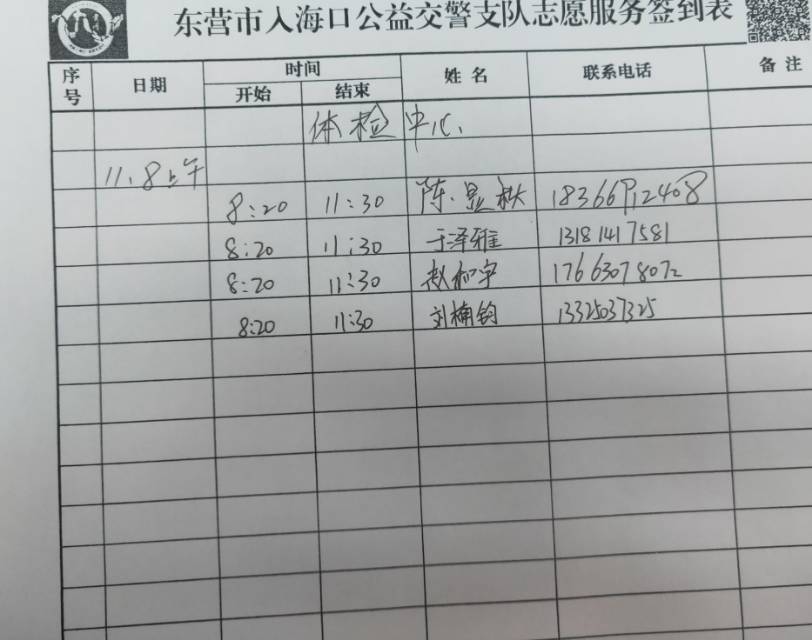 东营市入海口公益交警支队志愿服务签到表
序号 日期 时间 姓名 联系电话 备注
开始 结束
体检中心
11.8上午
8:20 11:30 陈昱秋
8:20 11:30 于泽雅 13181417581
8:20 11:30 赵和宇 17663078072
8:20 11:30 刘楠钧 13325037325